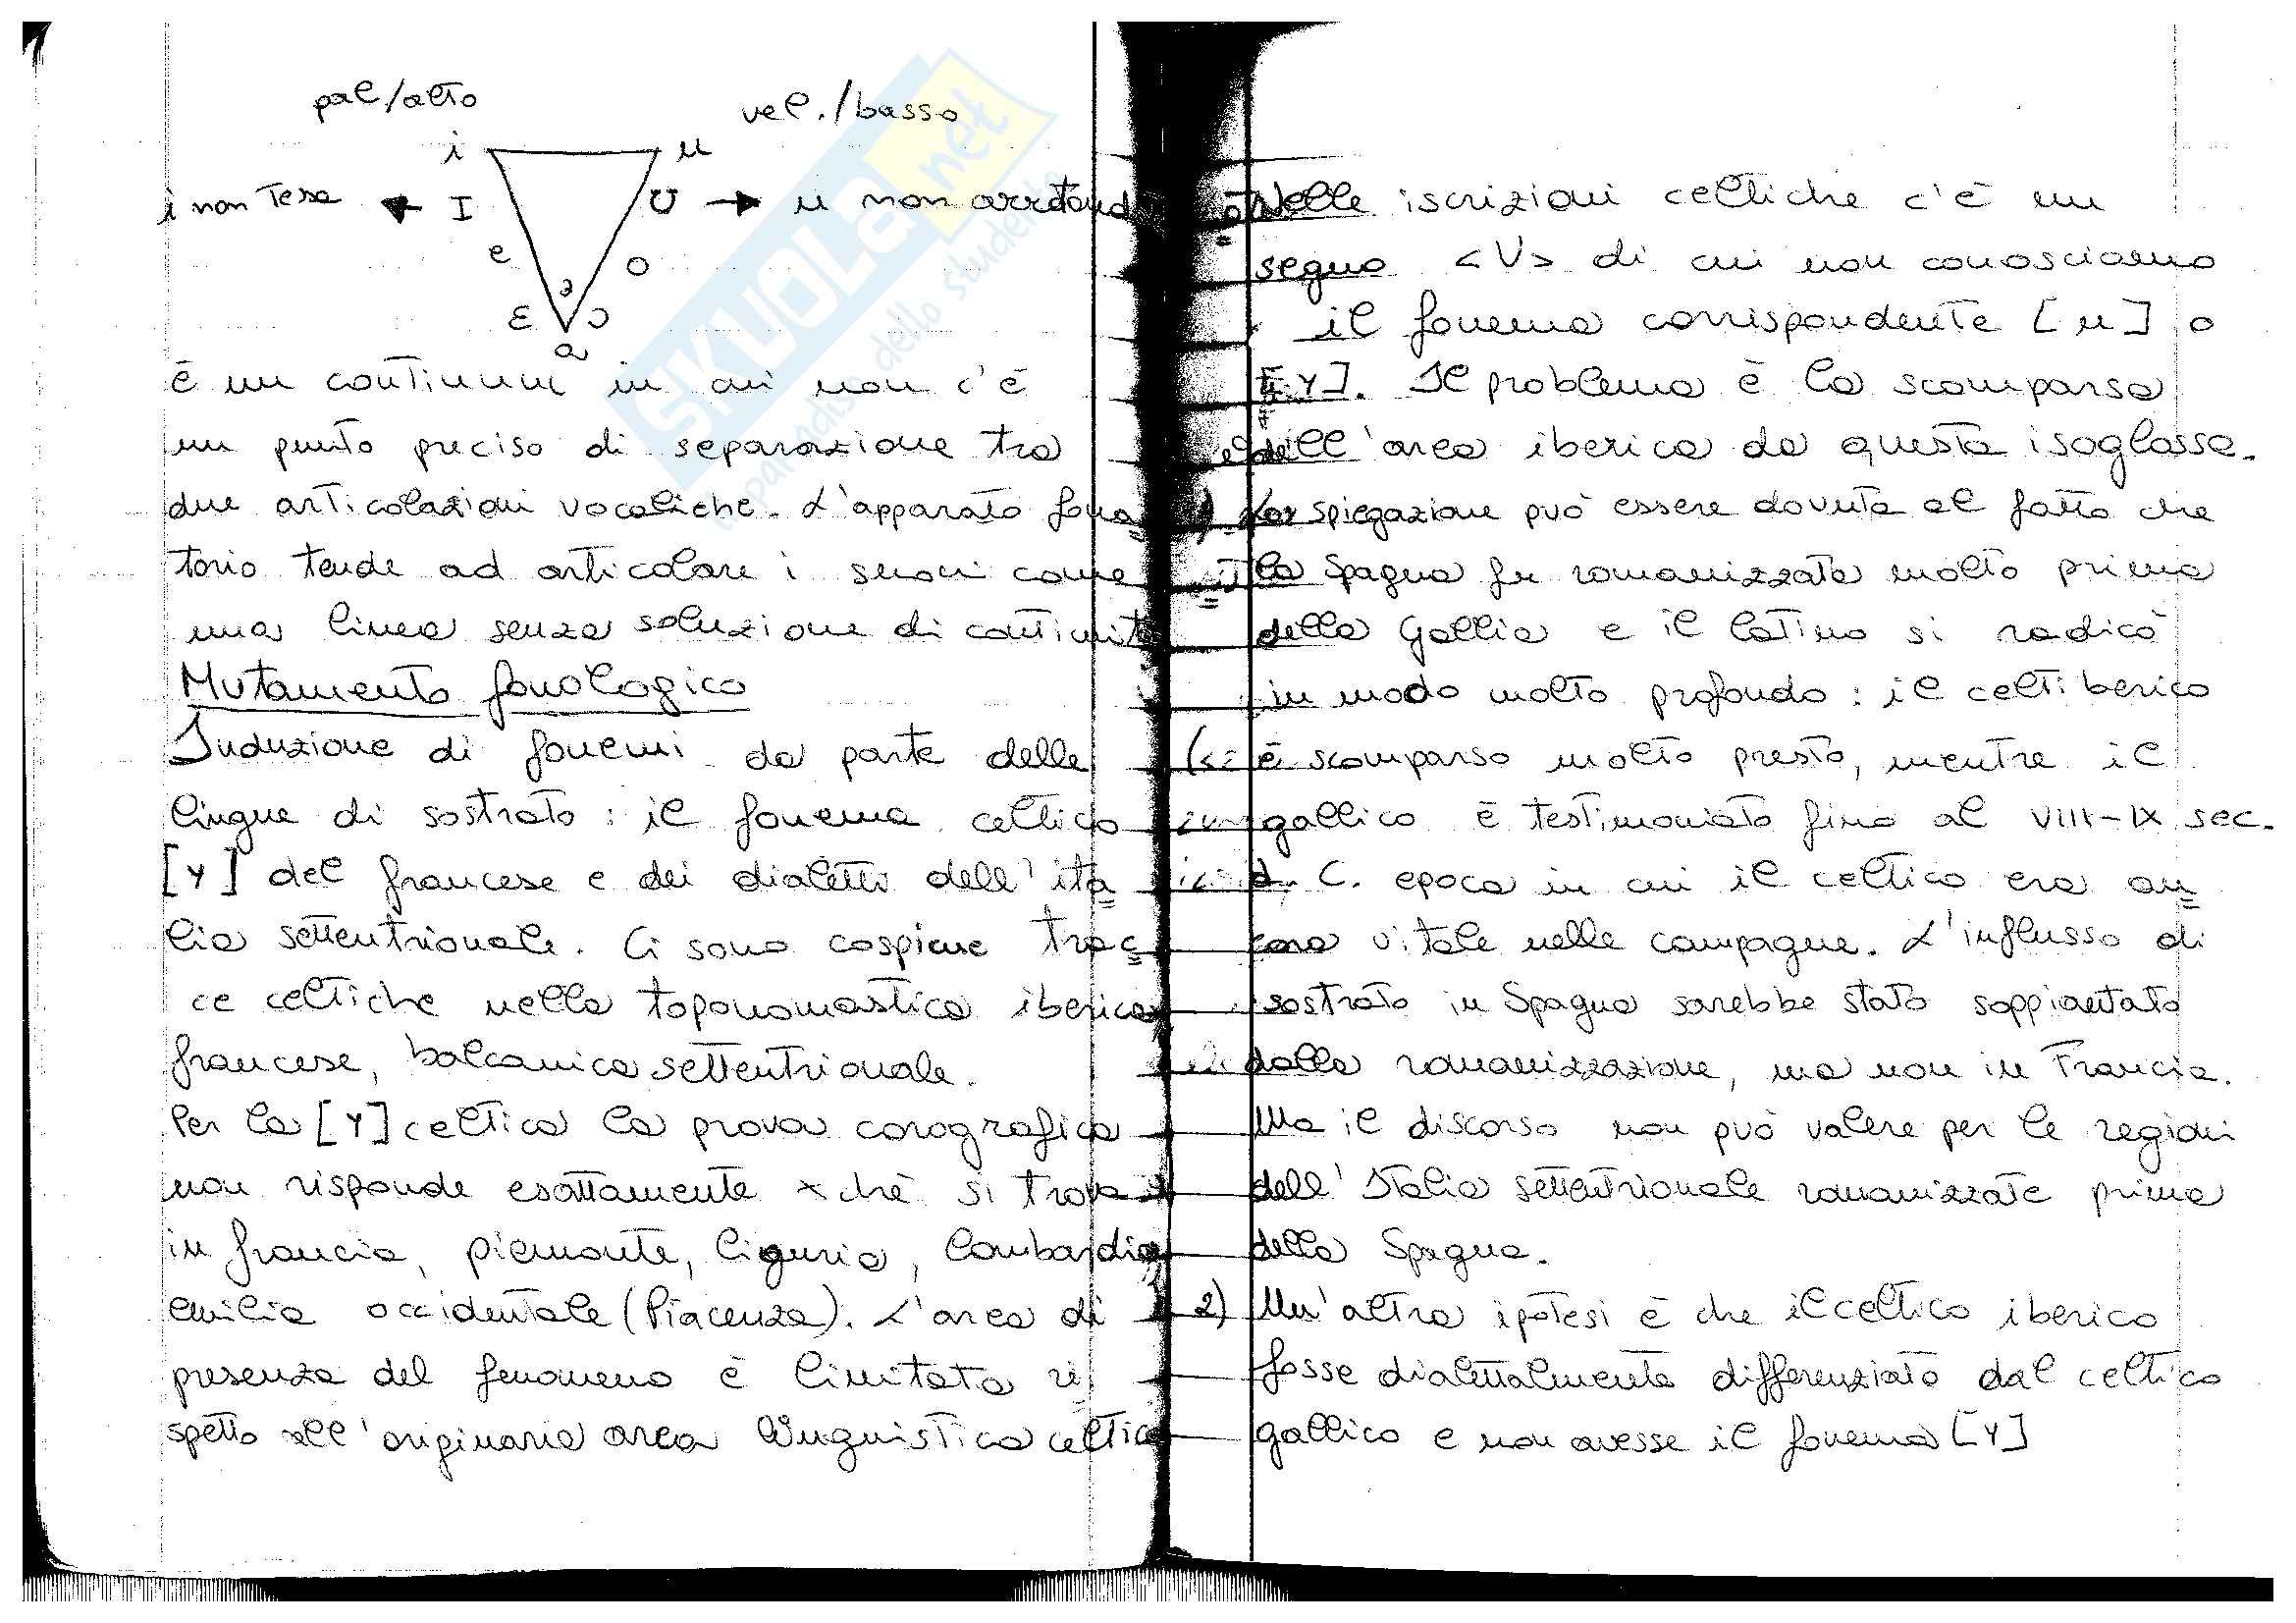 pal/alto vel./basso
i u
i non tesa I ʊ u non arrotond
e o
ə
ɛ ɔ
a
è un continuum in cui non c'è
un punto preciso di separazione tra
due articolazioni vocaliche. L'apparato fona
torio tende ad articolare i suoni come
una linea senza soluzione di continuità
Mutamento fonologico
Induzione di fonemi da parte delle
lingue di sostrato: il fonema celtico
[Y] del francese e dei dialetti dell'ita
lia settentrionale. Ci sono cospicue trac
ce celtiche nella toponomastica iberica
francese, balcanica settentrionale.
Per la [Y] celtica la prova corografica
non risponde esattamente xchè si trova
in francia, piemonte, liguria, lombardia
emilia occidentale (Piacenza). L'area di
presenza del fenomeno è limitata ri
spetto all'originaria area linguistica celtica
Nelle iscrizioni celtiche c'è un
segno <V> di cui non conosciamo
il fonema corrispondente [u] o
[Y]. Il problema è la scomparsa
dell'area iberica da questa isoglossa.
1) La spiegazione può essere dovuta al fatto che
la Spagna fu romanizzata molto prima
della Gallia e il latino si radicò
in modo molto profondo: il celtiberico
è scomparso molto presto, mentre il
gallico è testimoniato fino al VIII-IX sec.
d. C. epoca in cui il celtico era an
cora vitale nelle campagne. L'influsso di
sostrato in Spagna sarebbe stato soppiantato
dalla romanizzazione, ma non in Francia.
Ma il discorso non può valere per le regioni
dell'Italia settentrionale romanizzate prima
della Spagna.
2) Un'altra ipotesi è che il celtico iberico
fosse dialettalmente differenziato dal celtico
gallico e non avesse il fonema [Y]
SKUOLA.net
il paradiso dello studente